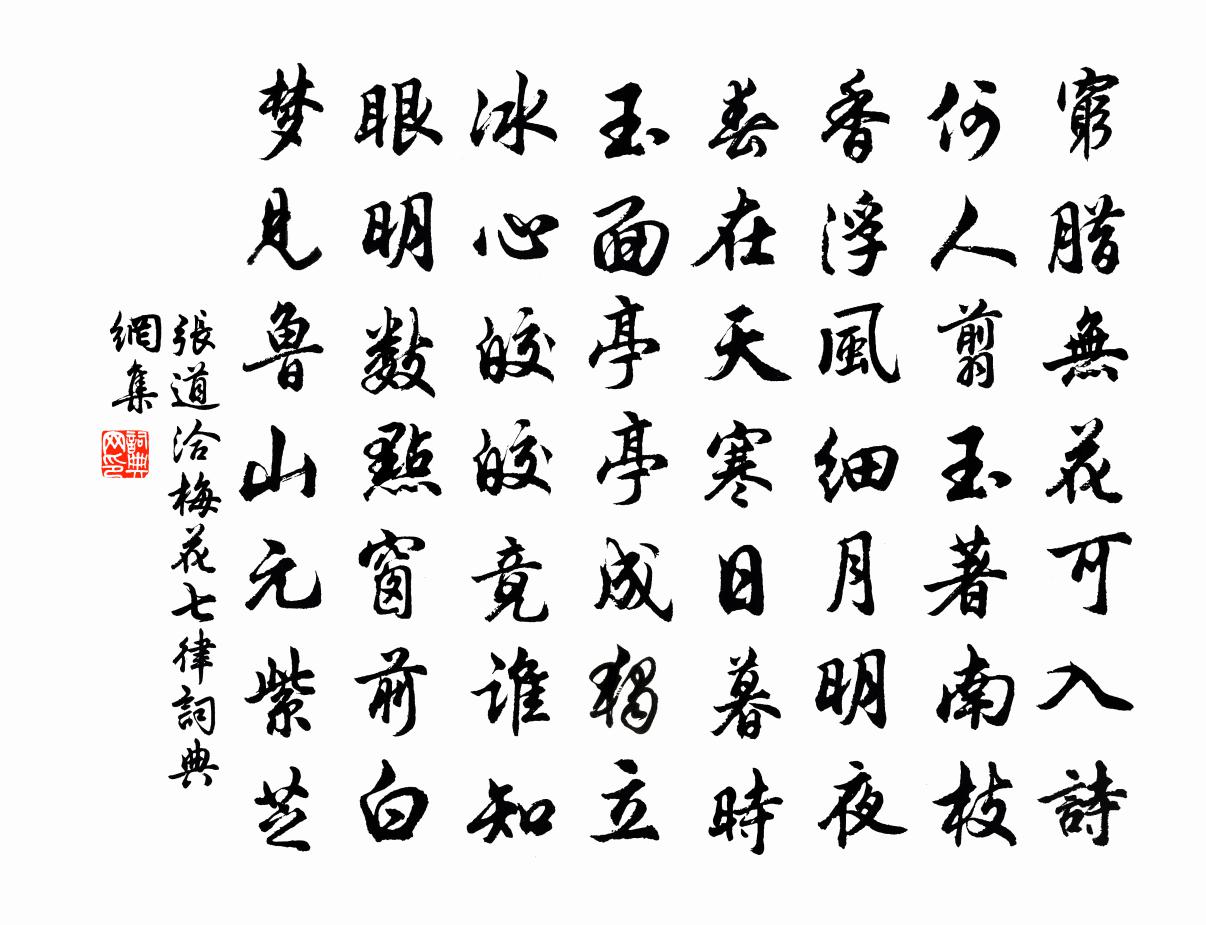 窮腊無花可入詩
何人翦玉著南枝
香浮風細月明夜
春在天寒日暮時
玉面亭亭成獨立
冰心皎皎竟誰知
眼明數點窗前白
梦見魯山元紫芝
張道洽梅花七律詞典
網集
詞典
网印